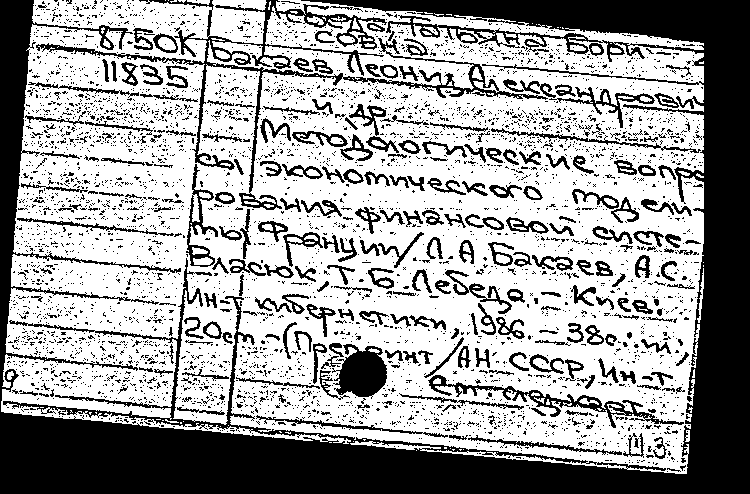 Лебеда, Татьяна Бори-
совна
87-50К Бакаев, Леонид Александрович
11835
и др.
Методологические вопро
сы экономического модели-
рования финансовой систе-
мы Франции / Л.А. Бакаев, А.С.
Власюк, Т.Б. Лебеда. - Киев:
Ин-т кибернетики, 1986. - 38с.: ил;
20см. - (Препринт / АН СССР, Ин-т
9 см. след. карт.
Ш.З.